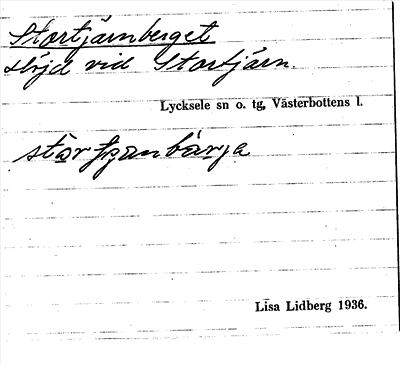 Stortjärnberget
Höjd vid Stortjärn.
Lycksele sn o. tg, Västerbottens l.
Lisa Lidberg 1936.